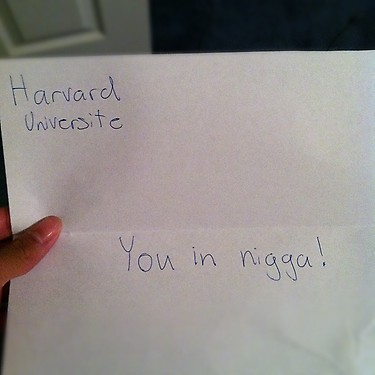 Harvard
Universite
You in nigga!